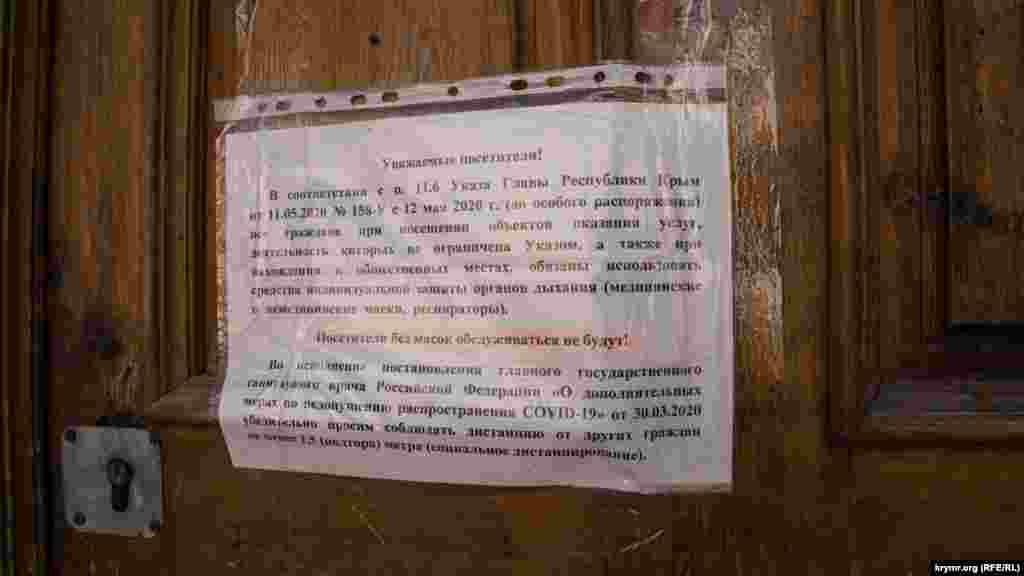 Уважаемые посетители!
В соответствии с п. 11.6 Указа Главы Республики Крым
от 11.05.2020 № 158-У с 12 мая 2020 г. (до особого распоряжения)
все граждане при посещении объектов оказания услуг,
деятельность которых не ограничена Указом, а также при
нахождении в общественных местах, обязаны использовать
средства индивидуальной защиты органов дыхания (медицинские
и немедицинские маски, респираторы).
Посетители без масок обслуживаться не будут!
Во исполнение постановления главного государственного
санитарного врача Российской Федерации «О дополнительных
мерах по недопущению распространения COVID-19» от 30.03.2020
убедительно просим соблюдать дистанцию от других граждан
не менее 1,5 (полтора) метра (социальное дистанцирование).
krymr.org (RFE/RL)